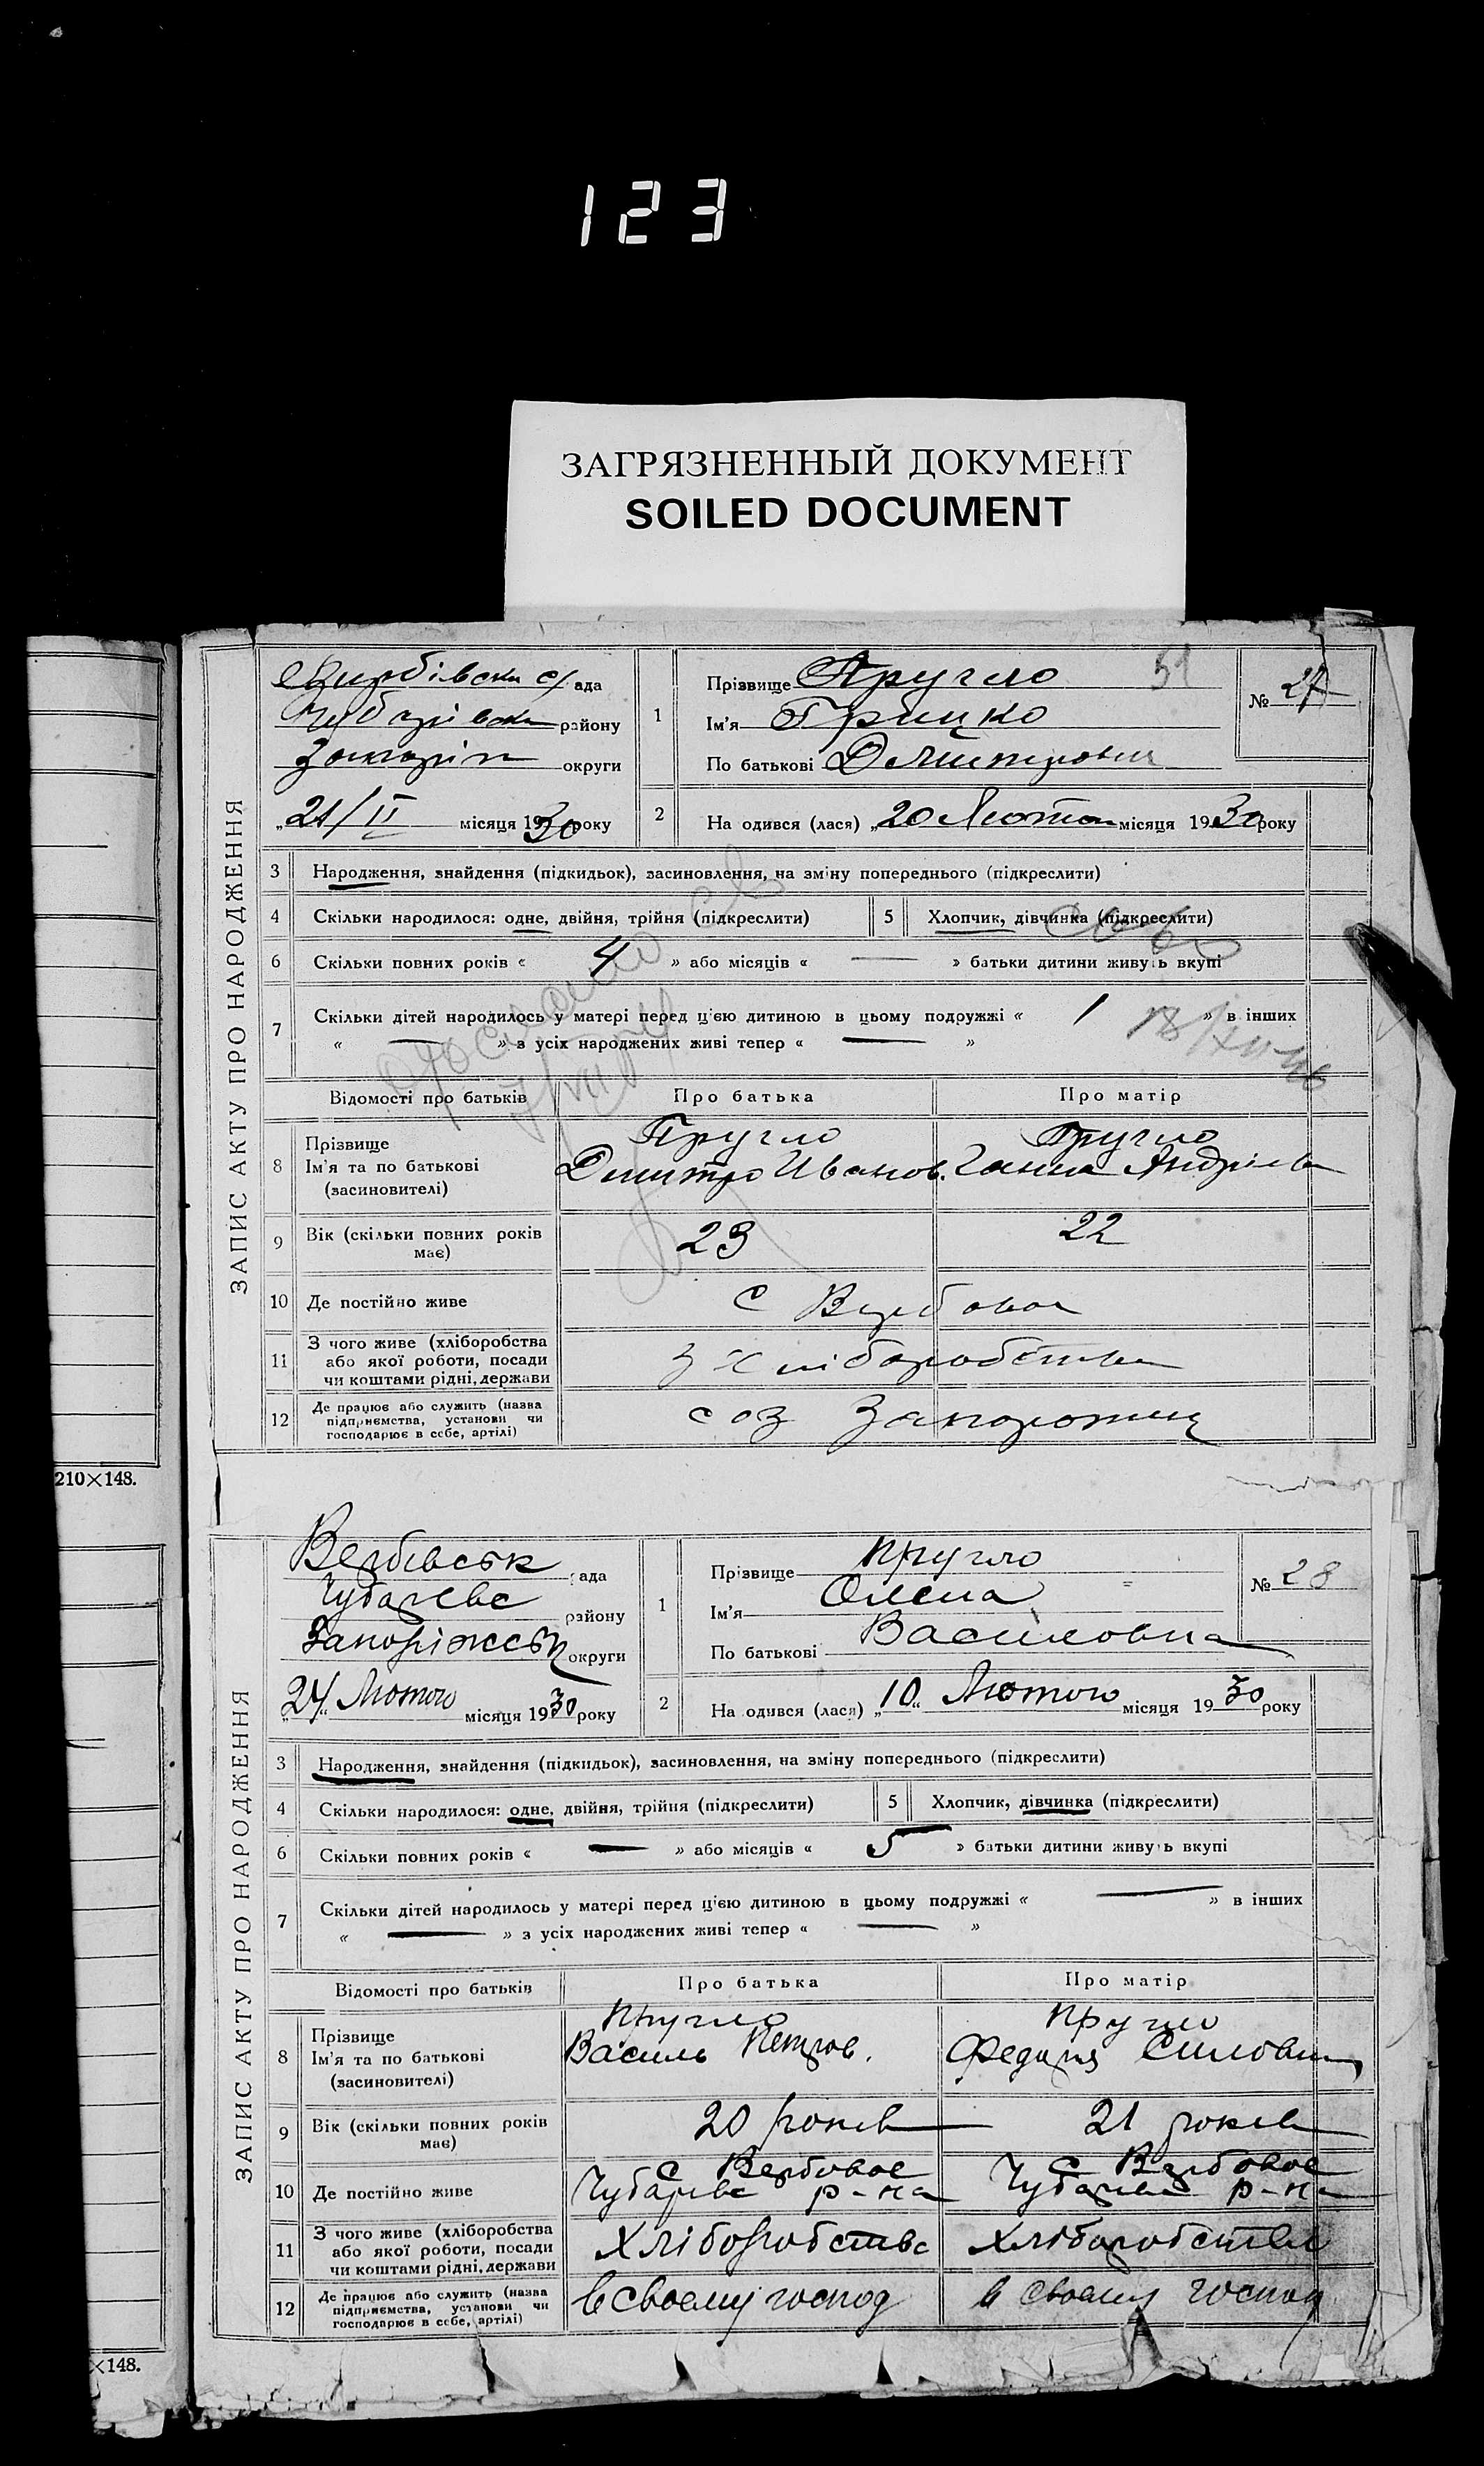 123
ЗАГРЯЗНЕННЫЙ ДОКУМЕНТ
SOILED DOCUMENT
210×148.
×148.
ЗАПИС АКТУ ПРО НАРОДЖЕННЯ
ада
району
округи
„21/II місяця 1930 року
1
Прізвище Пругло
51
Ім'я Грицко
По батькові Дмитрович
№ 27
2 На одився (лася) „20 Лютого місяця 1930 року
3 Народження, знайдення (підкидьок), засиновлення, на зміну попереднього (підкреслити)
4 Скільки народилося: одне, двійня, трійня (підкреслити)
5 Хлопчик, дівчинка (підкреслити)
6 Скільки повних років « 4 » або місяців « — » батьки дитини живуть вкупі
7 Скільки дітей народилось у матері перед цією дитиною в цьому подружжі « 1 » в інших
« — » з усіх народжених живі тепер « — »
Відомості про батьків Про батька Про матір
8 Прізвище
Ім'я та по батькові
(засиновителі)
Пругло
Дмитро Иванов.
Пругло
Ганна Андріевн
9 Вік (скільки повних років має)
23
22
10 Де постійно живе
с Вербовое
11 З чого живе (хліборобства
або якої роботи, посади
чи коштами рідні, держави
з хліборобства
12 Де працює або служить (назва
підприємства, установи чи
господарює в себе, артілі)
соз Запорожец
ЗАПИС АКТУ ПРО НАРОДЖЕННЯ
Вербівськ ада
Чубарівс району
Запоріжськ округи
„24“ Лютого місяця 1930 року
1
Прізвище Пругло
Ім'я Олена
По батькові Василовна
№ 28
2 На одився (лася) „10“ Лютого місяця 1930 року
3 Народження, знайдення (підкидьок), засиновлення, на зміну попереднього (підкреслити)
4 Скільки народилося: одне, двійня, трійня (підкреслити)
5 Хлопчик, дівчинка (підкреслити)
6 Скільки повних років « — » або місяців « 5 » батьки дитини живуть вкупі
7 Скільки дітей народилось у матері перед цією дитиною в цьому подружжі « — » в інших
« — » з усіх народжених живі тепер « — »
Відомості про батьків Про батька Про матір
8 Прізвище
Ім'я та по батькові
(засиновителі)
Пругло
Василь Петров.
Пругло
Федоря Силовн
9 Вік (скільки повних років має)
20 років
21 років
10 Де постійно живе
с Вербовое
Чубарівс р-на
с Вербовое
Чубарівс р-на
11 З чого живе (хліборобства
або якої роботи, посади
чи коштами рідні, держави
Хліборобства
Хліборобства
12 Де працює або служить (назва
підприємства, установи чи
господарює в себе, артілі)
в своему господ
в своему господ